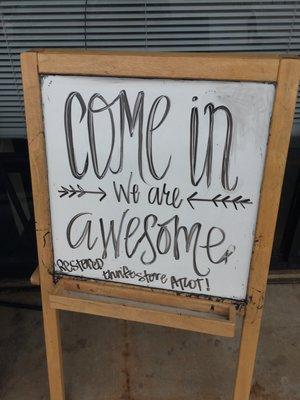 come in
we are
awesome!
Restored
thriftstore ALOT!